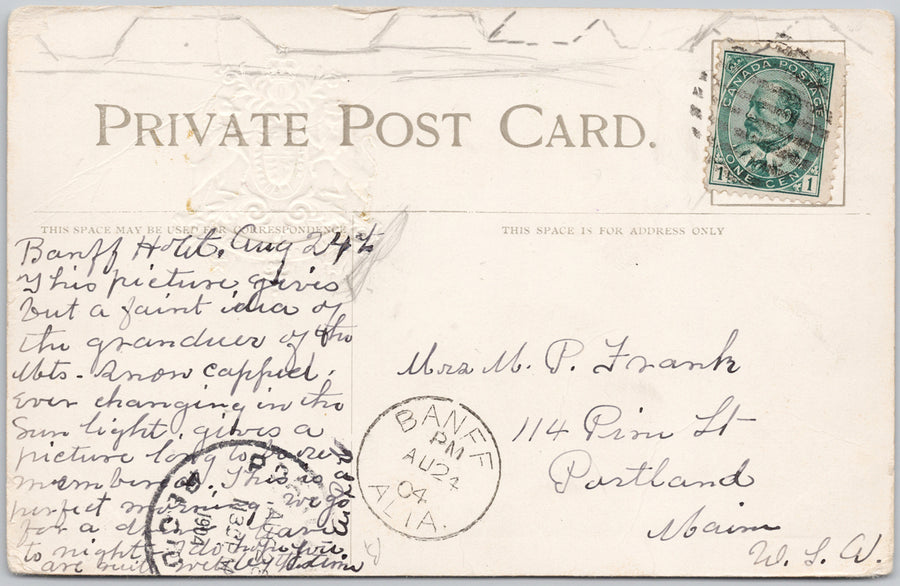 PRIVATE POST CARD.
CANADA POSTAGE
ONE CENT
1 1
THIS SPACE MAY BE USED FOR CORRESPONDENCE
THIS SPACE IS FOR ADDRESS ONLY
Banff Hotel. Aug 24th
This picture gives
but a faint idea of
the granduer of the
Mts - Snow capped,
ever changing in the
Sun light, gives a
picture long to be re
membered. This is
perfect morning - we go
for a drive leave
to night. I do hope you
are
Mrs M. P. Frank
114 Pine St
Portland
Maine
U. S. A.
BANFF
PM
AU 24
04
ALTA.
1904